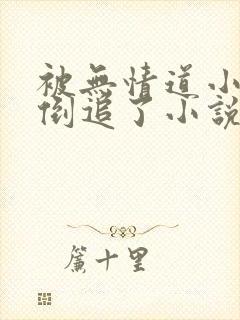 被無情道小
倒追了小說
簾十里